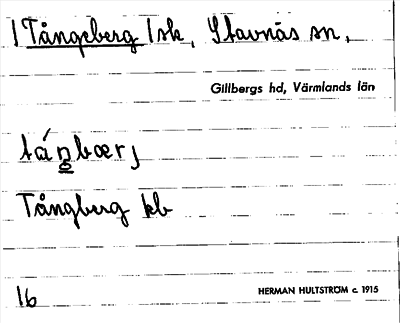 | Tångeberg | sk, Stavnäs sn,
Gillbergs hd, Värmlands län
táŋbærj
Tångberg kb
16
HERMAN HULTSTRÖM c. 1915